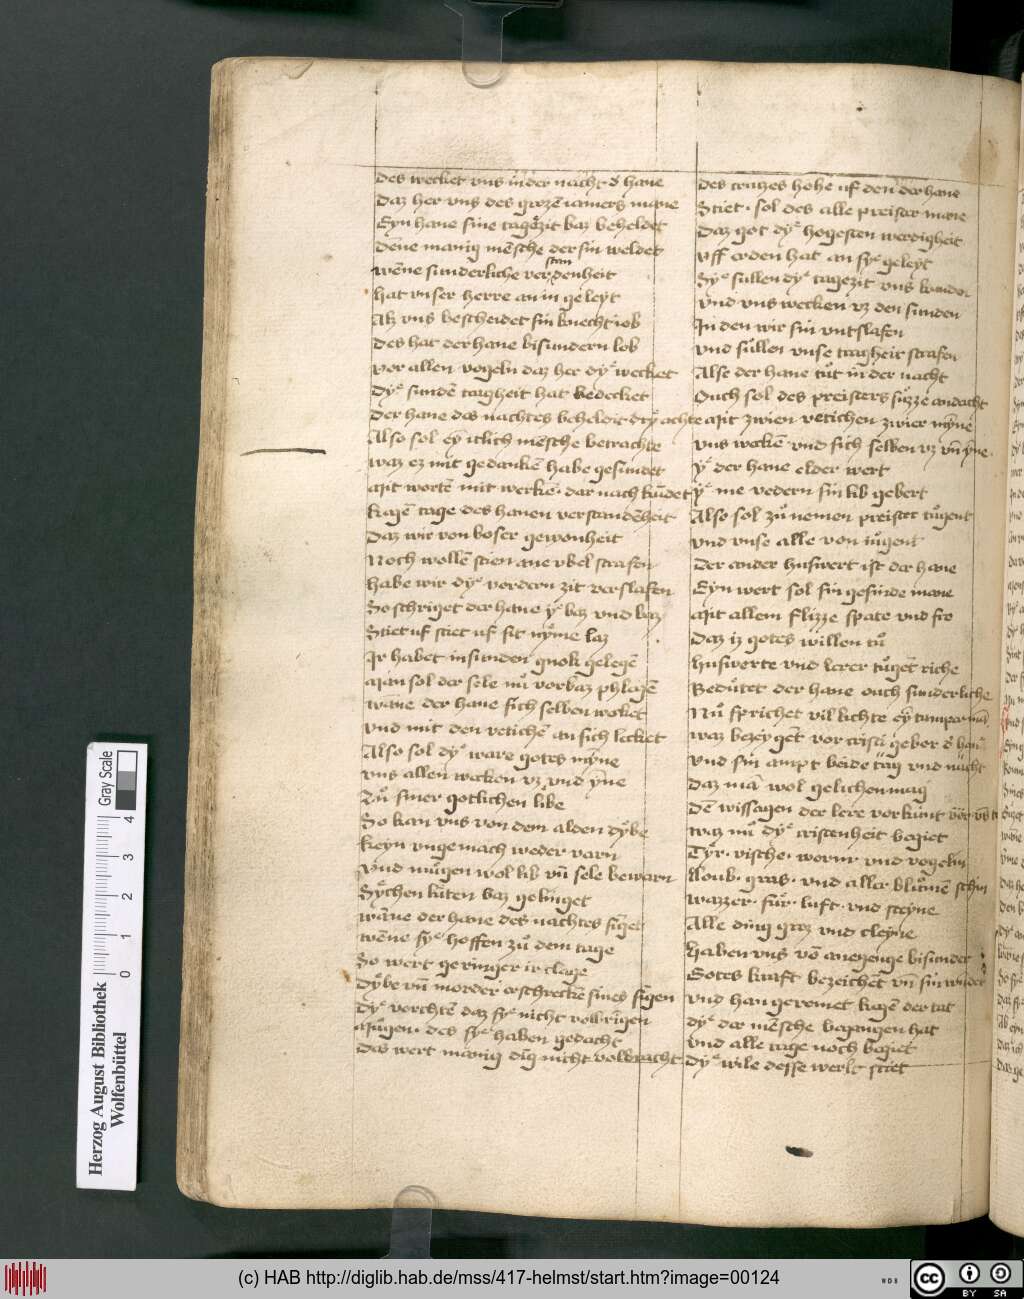 des wecket uns in der nacht d hane
Daz her uns des grozē iamers mane
Eyn hane sine tagezit baz beheldet
Denne manig mēsche der sin weldet
wēne sunderliche ver stan denheit
Hat unser herre an in geleyt
Alz uns bescheidet sin knecht iob
Des hat der hane bisundern lob
vor allen vogeln daz her dye wecket
Dye sundē tragheit hat bedecket
Der hane des nachtes beheldit drye achte
Also sol ey itlich mēsche betrachte
waz ez mit gedankē habe gesundet
Mit wortē mit werkē dar nach kūdet
kagē tage des hanen verstandēheit
Daz wir von boser gewonheit
Noch wollē stien ane ubel strafen
habe wir dye vordern zit verslafen
So schriget der hane ye baz und baz
Stiet uf stiet uf sit nyme laz
Ir habet in sunden gnok gelegē
Man sol der sele nu vorbaz phlegē
wāne der hane sich selben wecket
vnd mit den vetichē an sich lecket
Also sol dye ware gotes myne
uns allen wecken uz und yne
Zu siner gotlichen libe
So kan uns von dem alden dybe
keyn ungemach weder varn
Und mugen wol lib uñ sele bewarn
Sychen luten baz gelinget
wāne der hane des nachtes singet
wēne sye hoffen zu dem tage
So wert geringer ir clage
Dybe uñ morder erschreckē sines singen
Dye vorchtē daz sye nicht vollbrigen
Mugen des sye haben gedacht
Das wert manig dig nicht volbracht
Des crutzes hohe uf den der hane
Stiet sol des alle preister mane
Daz got dye hogesten werdigheit
Uff erden hat an sye geleyt
Sye sullen dye tagezit uns kunden
Und uns wecken uz den sunden
In den wir sin entslafen
Und sullen unse tragheit strafen
Alse der hane tut in der nacht
Ouch sol des preisters suzze andacht
Mit zwien vetichen zwier myne
uns weckē und sich selben uz uñ yne
ye der hane elder wert
ye me vedern sin lib gebert
Also sol zu nemen preister tugent
und unse alle von iugent
Der ander huswert ist der hane
Eyn wert sol sin gesinde mane
Mit allem flizze spate und fro
Daz iz gotes willen tu
Huswerte und lerer tuget riche
Bedutet der hane ouch sunderliche
Nu sprichet vil lichte ey tumper mā
waz bezeyget vor cristi gebor d han
und sin ampt beide tag und nacht
Daz mā wol gelichen mag
Dē wissagen der lere vorkunt
waz nu dye cristenheit begiet
Tyr vische worm und vogelin
Loub gras und aller blumē schin
wazzer fur luft und steyne
Alle ding groz und cleyne
Haben uns vō anegenge bisunder
Gotes kraft bezeichēt uñ sin wunder
und han geremet kagē der tat
dye der mēsche begangen hat
Und alle tage noch begiet
Dye wile desse werlt stiet
Herzog August Bibliothek
Wolfenbüttel
Gray Scale
0 1 2 3 4
(c) HAB http://diglib.hab.de/mss/417-helmst/start.htm?image=00124
WDB
cc
BY SA